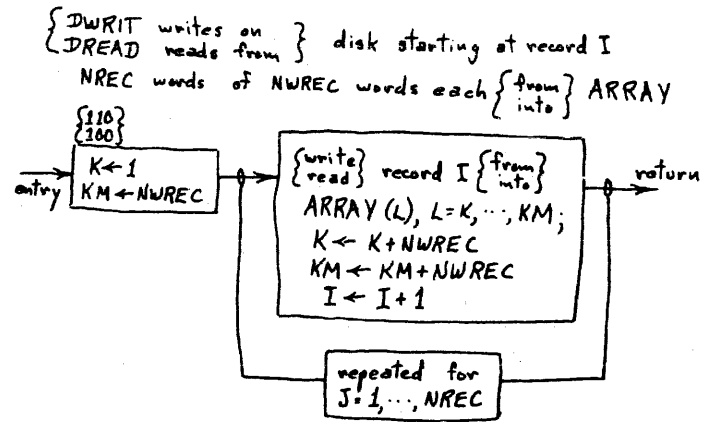 { DWRIT writes on
DREAD reads from } disk starting at record I
NREC words of NWREC words each { from
into } ARRAY
{ 110
100 }
entry
K ← 1
KM ← NWREC
{ write
read } record I { from
into }
ARRAY (L), L = K, ···, KM;
K ← K + NWREC
KM ← KM + NWREC
I ← I + 1
return
repeated for
J = 1, ···, NREC